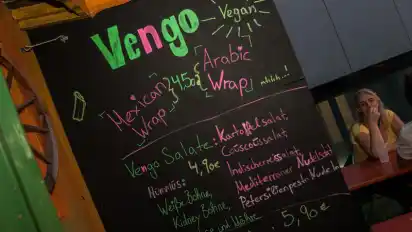 Vengo
Vegan
Mexican
Wrap
4,50
Arabic
Wrap
Vengo Salate:
4,90€
Kartoffelsalat,
Couscoussalat,
Indischerreissalat,
Mediterraner Nudelsalat
Petersilienpesto Nudeln
Weiße Bohne,
Kidney Bohne,
5,90€